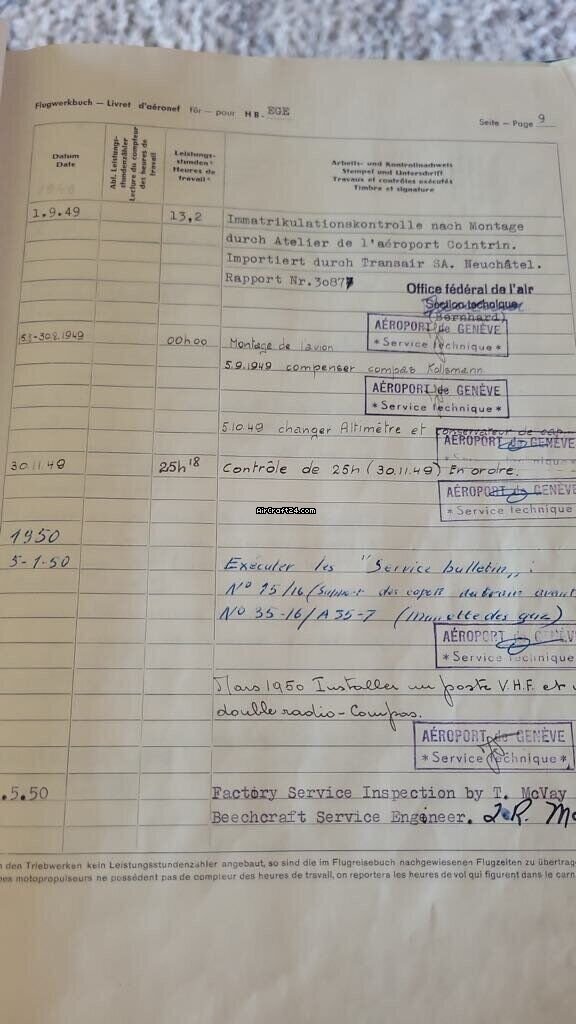 Flugwerkbuch — Livret d'aéronef für — pour HB-EGE
Seite — Page 9
Datum
Date
Abl. Leistungs-
stundenzähler
Lecture du compteur
des heures de
travail
Leistungs-
stunden
Heures de
travail
Arbeits- und Kontrollnachweis
Stempel und Unterschrift
Travaux et contrôles exécutés
Timbre et signature
1.9.49 13,2 Immatrikulationskontrolle nach Montage
durch Atelier de l'aéroport Cointrin.
Importiert durch Transair SA. Neuchâtel.
Rapport Nr.30877
Office fédéral de l'air
Section technique
(Bernhard)
AÉROPORT de GENÈVE
* Service technique *
-30.8.1949 00h00 Montage de l'avion
5.9.1949 compenser compas Kollsmann
AÉROPORT de GENÈVE
* Service technique *
5.10.49 changer Altimètre et conservateur de cap.
AÉROPORT de GENÈVE
30.11.49 25h18 Contrôle de 25h (30.11.49) En ordre.
AÉROPORT de GENÈVE
* Service technique
AirCraft24.com
1950
5-1-50 Exécuter les "Service bulletin" :
No 15/16 (Support des capots du train avant
No 35-16/A 35-7 (Manette des gaz)
AÉROPORT de GENÈV
* Service technique
Mars 1950 Installer un poste V.H.F. et u
double radio-Compas.
AÉROPORT de GENÈVE
* Service technique *
.5.50 Factory Service Inspection by T. McVay
Beechcraft Service Engineer. J.R. Mc
n den Triebwerken kein Leistungsstundenzähler angebaut, so sind die im Flugreisebuch nachgewiesenen Flugzeiten zu übertrage
es motopropulseurs ne possèdent pas de compteur des heures de travail, on reportera les heures de vol qui figurent dans le carn